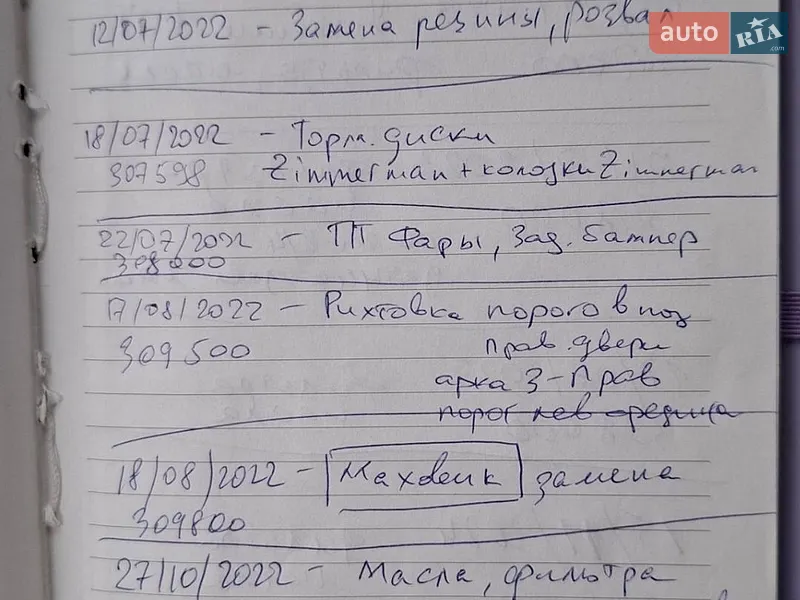 12/07/2022 - Замена резины, розвал
auto RIA .com
18/07/2022 - Торм. диски
307598 Zimmerman + колодки Zimmerman
22/07/2022 - ТП Фары, Зад. бампер
308000
17/08/2022 - Рихтовка порогов под
309500 прав. двери
арка З-Прав
порог лев средина
18/08/2022 - Маховик замена
309800
27/10/2022 - Масла, фильтра